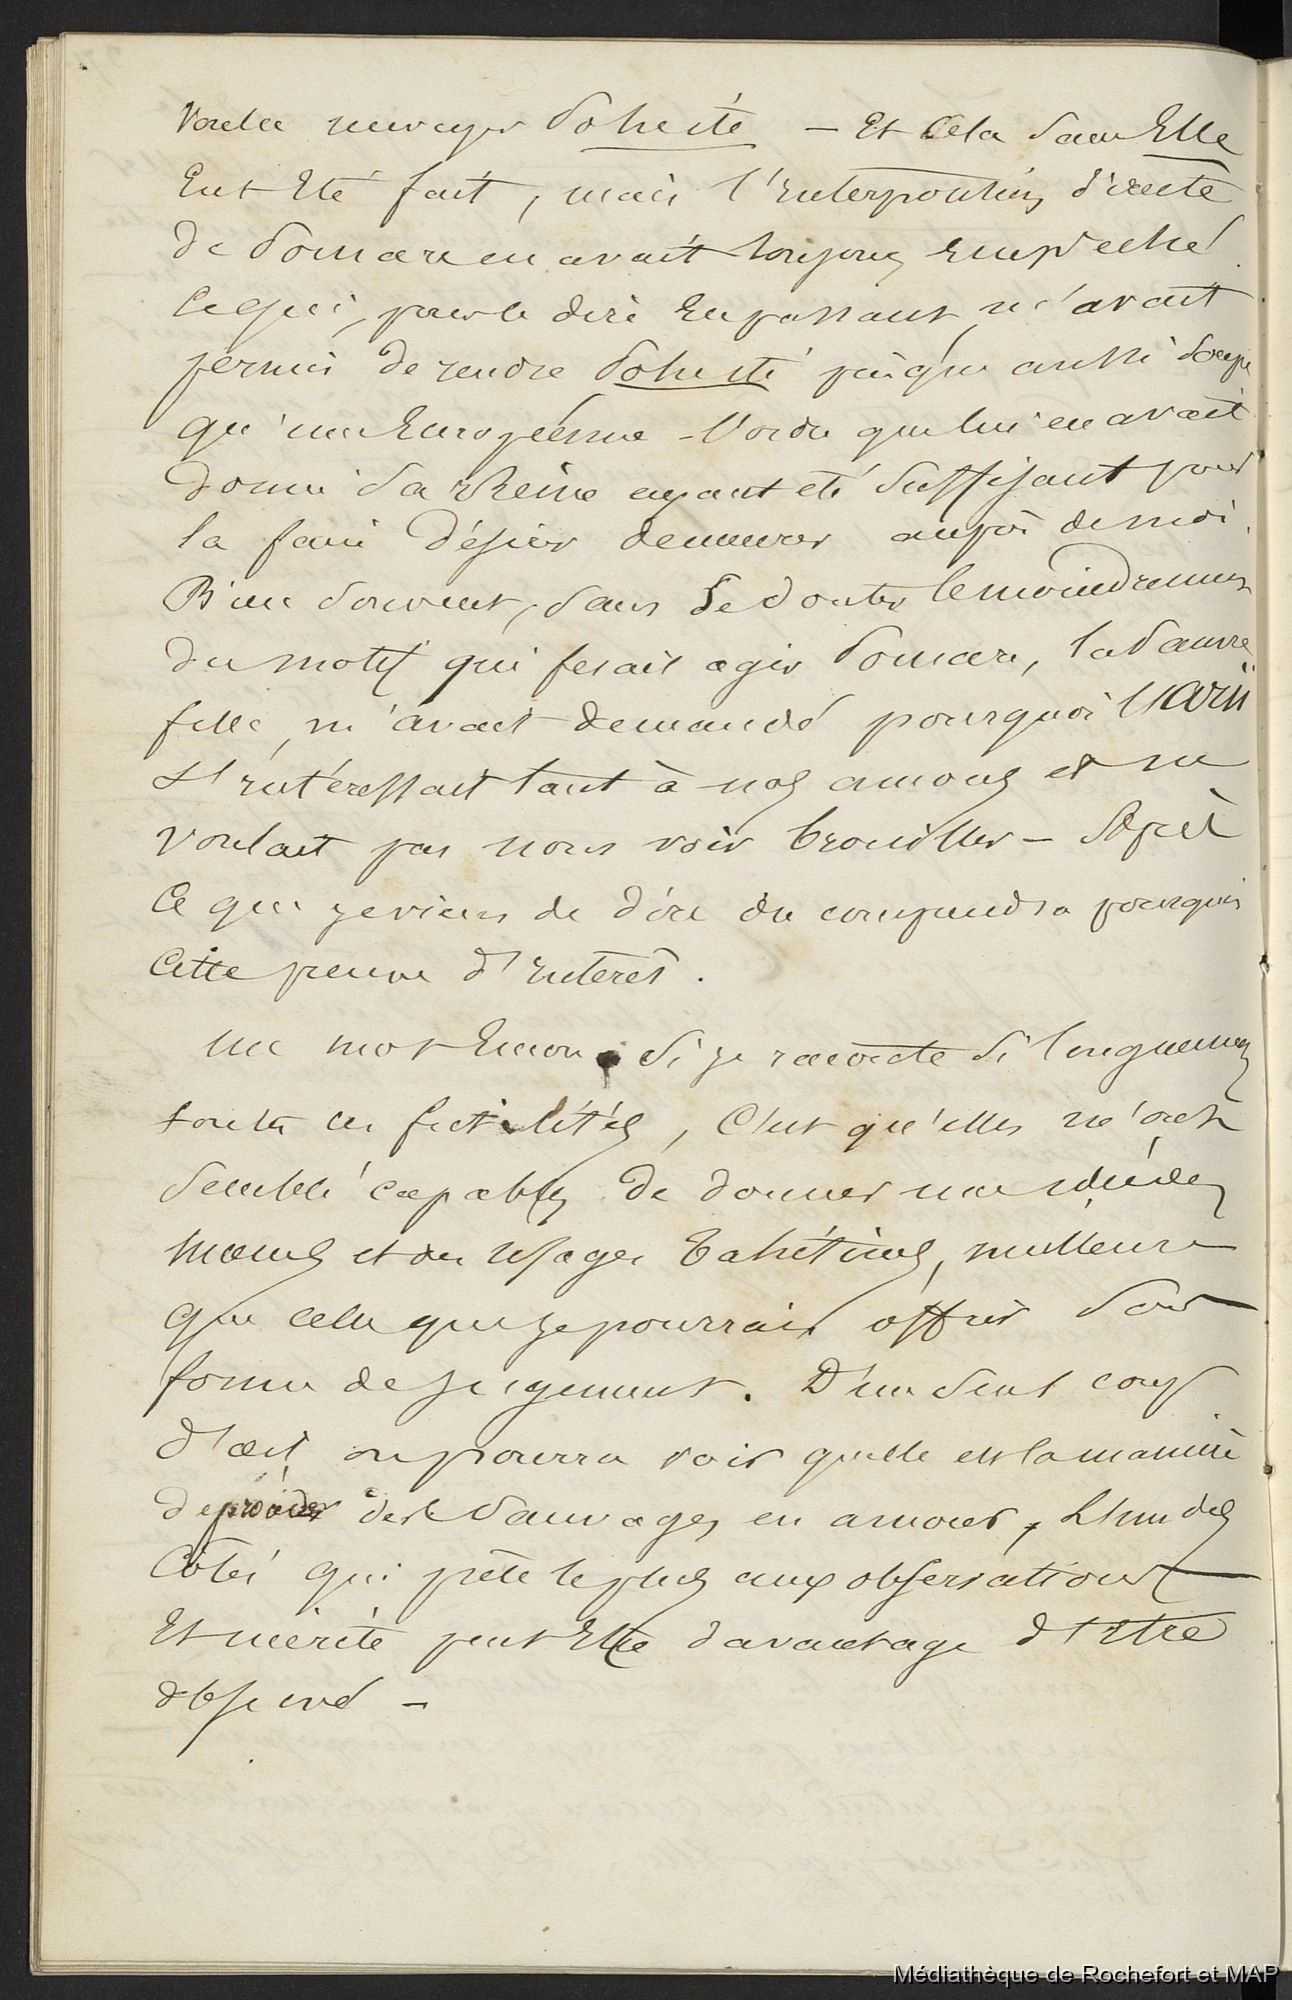 voulu renvoyer Pohesté — Et Cela sans Elle
Eut Eté fait, mais l'interposition directe
de Pomaré en avait toujours Empêché
Ce qui, pour le dire En passant m'avait
permis de rendre Pohesté presque aussi souple
qu'une Européenne - l'ordre que lui en avait
donné sa Reine ayant été suffisant pour
la faire désirer demeurer auprès de moi.
Bien souvent, sans Se douter le moindrement
du motif qui fesait agir Pomaré, la Pauvre
fille, m'avait demandé pourquoi l'Arii
s'intéressait tant à nos amours et ne
voulait pas nous voir brouiller — Après
Ce que je viens de dire on comprendra pourquoi
Cette preuve d'intérêt.
Un mot Encore. Si je raconte si longuement
toutes ces futilités, C'est qu'elles m'ont
Semblé capables de donner une idée des
Mœurs et des Usages Tahitiens, meilleure
que celle que je pourrais offrir sous
forme de jugement. D'un seul coup
d'œil on pourra voir quelle est la manière
de procéder des Sauvages en amour, L'un des
Côtés qui prête le plus aux observations
Et mérite peut Etre davantage d'Etre
observé —
Médiathèque de Rochefort et MAP